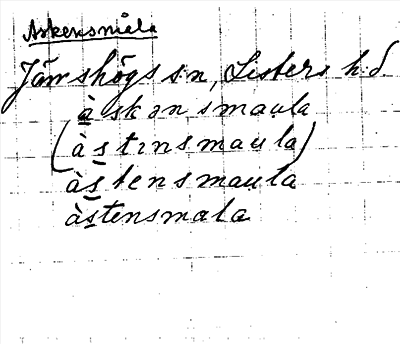 Askensmåla
Jämshögs s:n, Listers h:d
àskənsmaula
(àstınsmaula)
àstensmaula
àstensmala